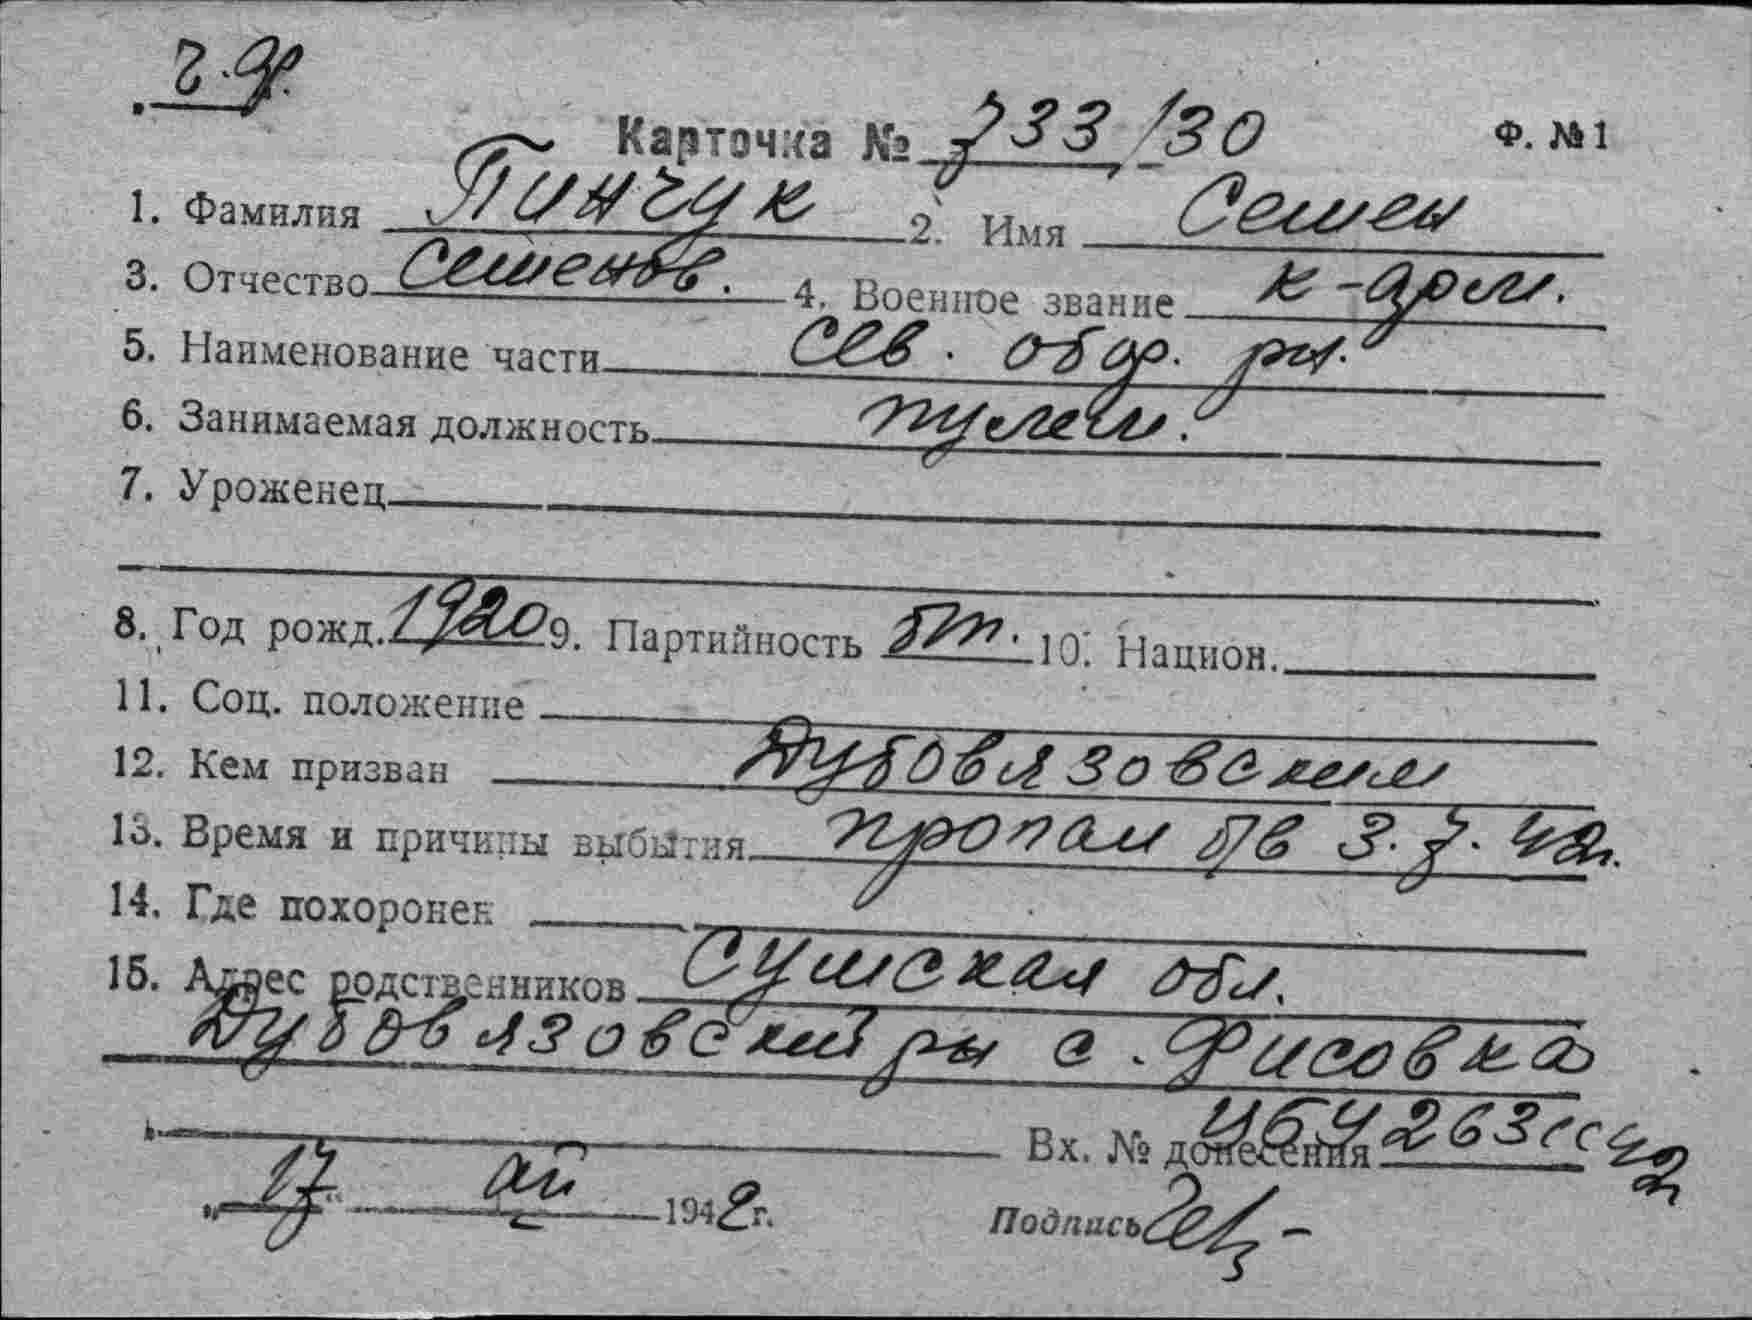 ч.ф.
Карточка № 733/30 Ф. №1
1. Фамилия Пинчук 2. Имя Семен
3. Отчество Семенов. 4. Военное звание к-арм.
5. Наименование части Сев. обор. рн.
6. Занимаемая должность пулем.
7. Уроженец
8. Год рожд. 1920 9. Партийность б/п. 10. Национ.
11. Соц. положение
12. Кем призван Дубовязовским
13. Время и причины выбытия пропал б/в 3.7.42г.
14. Где похоронен
15. Адрес родственников Сумская обл.
Дубовязовский рн с. Фисовка
Вх. № донесения 4263сс 42
„17“ 1942г. Подпись